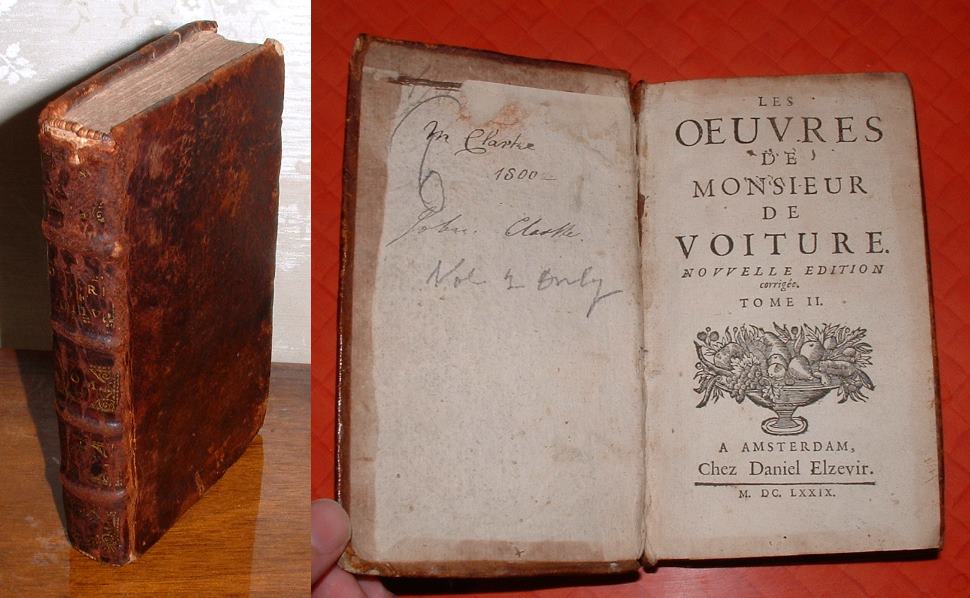 m Clarke
1800
John Clarke.
Vol 2 Only
LES
OEUVRES
DE
MONSIEUR
DE
VOITURE.
NOVVELLE EDITION
corrigée.
TOME II.
A AMSTERDAM,
Chez Daniel Elzevir.
M. DC. LXXIX.